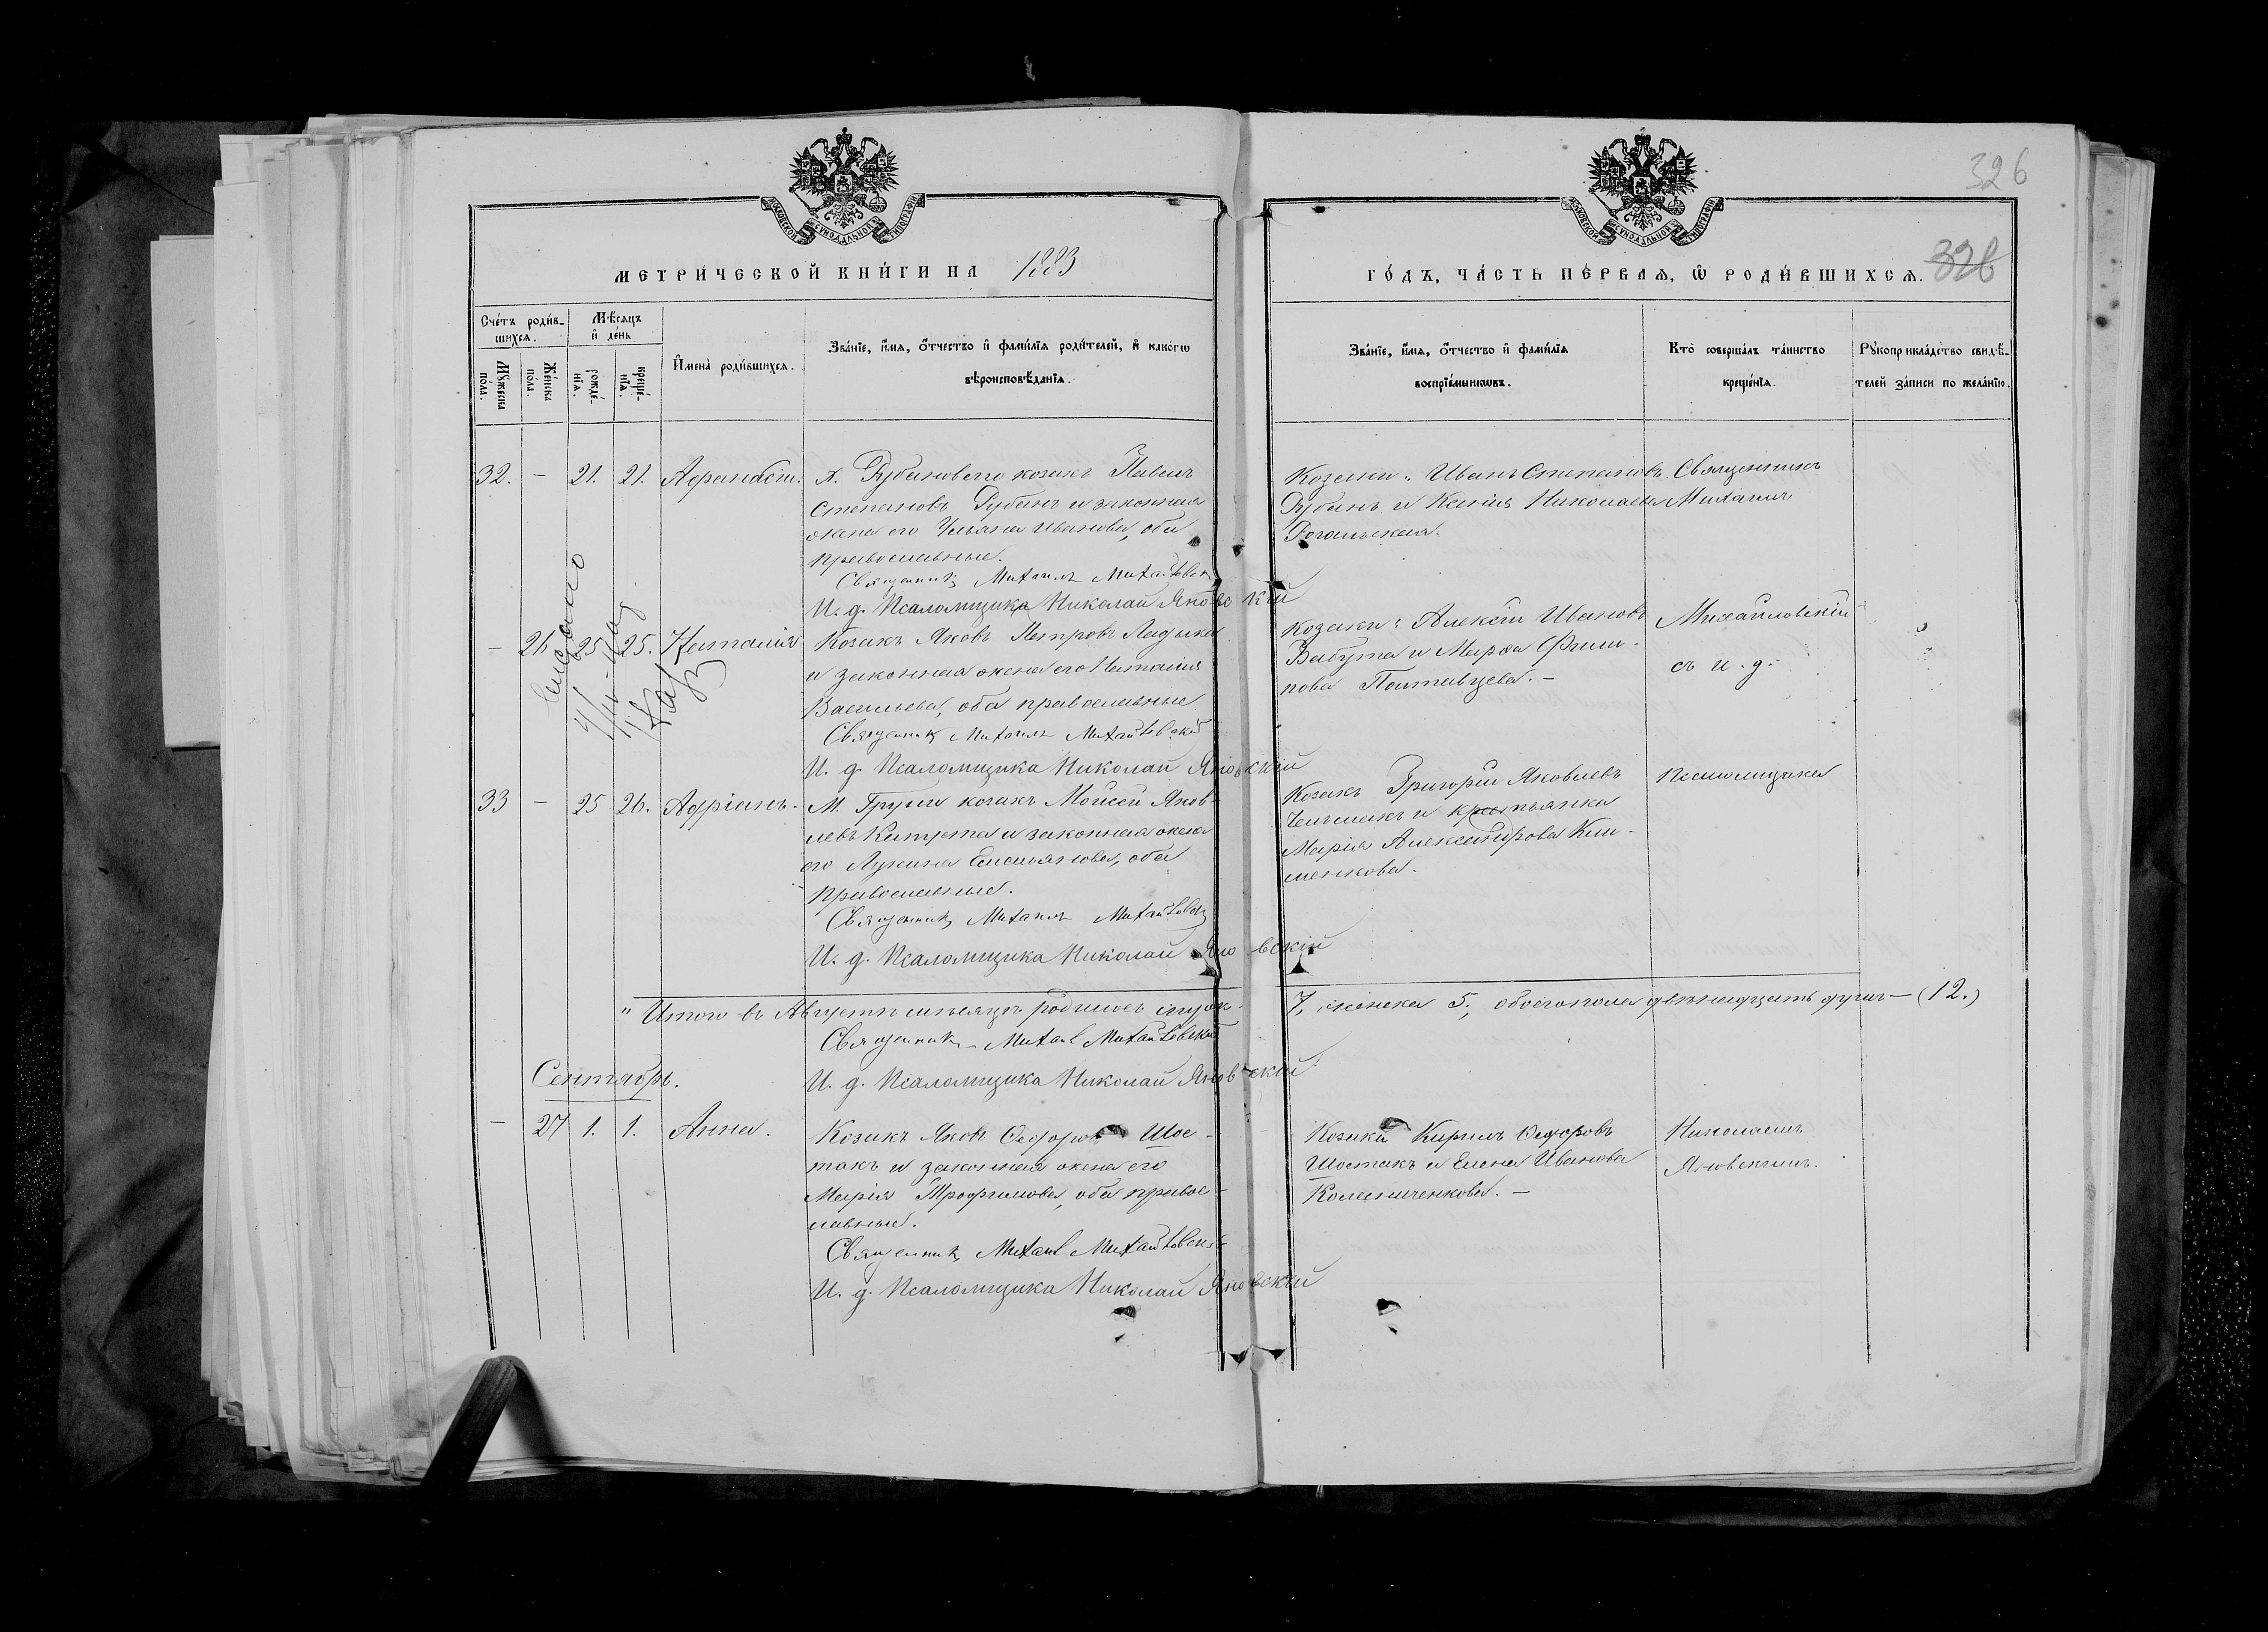 326
МОСКОВСКОЙ СѴНОДАЛЬНОЙ ТИПОГРАФІИ
МОСКОВСКОЙ СѴНОДАЛЬНОЙ ТИПОГРАФІИ
МЕТРИ́ЧЕСКОЙ КНИ́ГИ НА 1883
ГО́ДЪ, ЧА́СТЬ ПЕ́РВАЯ, Ѡ РОДИ́ВШИХСЯ. 326
Сче́тъ роди́в-
шихся.
Мѣ́сяцъ
и де́нь
Мꙋжеска
по́ла.
Же́нска
по́ла.
рожде́-
нія.
креще́-
нія.
Имена̀ роди́вшихся.
Зва́ніе, и́мя, о́тчество и фами́лія роди́телей, и како́гѡ
вѣроисповѣ́данія.
Зва́ніе, и́мя, о́тчество и фами́лія
воспріе́мникѡвъ.
Кто̀ соверша́лъ та́инство
креще́нія.
Рꙋкоприкла́дство свидѣ́-
телей за́писи по жела́нію.
32. – 21. 21. Афанасій.
х. Рубановаго козакъ Павелъ
Степановъ Рубанъ и законная
жена его Ульяна Иванова, оба
православные.
Священникъ Михаилъ Михайловск
И. д. Псаломщика Николай Яновскій
Козаки: Иванъ Степановъ
Рубанъ и Ксенія Николаева
Священникъ
Михаилъ
– 26 25 25. Наталія
Козакъ Яковъ Петровъ Ладыка
и законная жена его Наталія
Васильева, оба православные
Священникъ Михаилъ Михайловскій
И. д. Псаломщика Николай Яновскій
Козаки: Алексій Ивановъ
Бабута и Марѳа Фили-
пова Полтавцева. –
Михайловскій
съ и. д.
33 – 25 26. Адріанъ.
М. Груни козакъ Моисей Яков-
левъ и законная жена
его Лукина Емельянова, оба
православные.
Священникъ Михаилъ Михайловск
И. д. Псаломщика Николай Яновскій
Козакъ Григорій Яковлевъ
и крестьянка
Марія Александрова Кли-
менкова.
Псаломщика
" Итого въ Августѣ мѣсяцѣ родилось муж-
7, женска 5, обоего пола двѣнадцать душъ – (12.)
Священникъ Михаилъ Михайловскій
И. д. Псаломщика Николай Яновскій
Сентябрь.
– 27 1. 1. Анна.
Козакъ Яковъ Ѳедоровъ Шос-
такъ и законная жена его
Марія Трофимова, оба правос-
лавные.
Священникъ Михаилъ Михайловскій
И. д. Псаломщика Николай Яновскій
Козаки Кирилъ Ѳедоровъ
Шостакъ и Елена Иванова
Колесниченкова. –
Николаемъ
Яновскимъ.